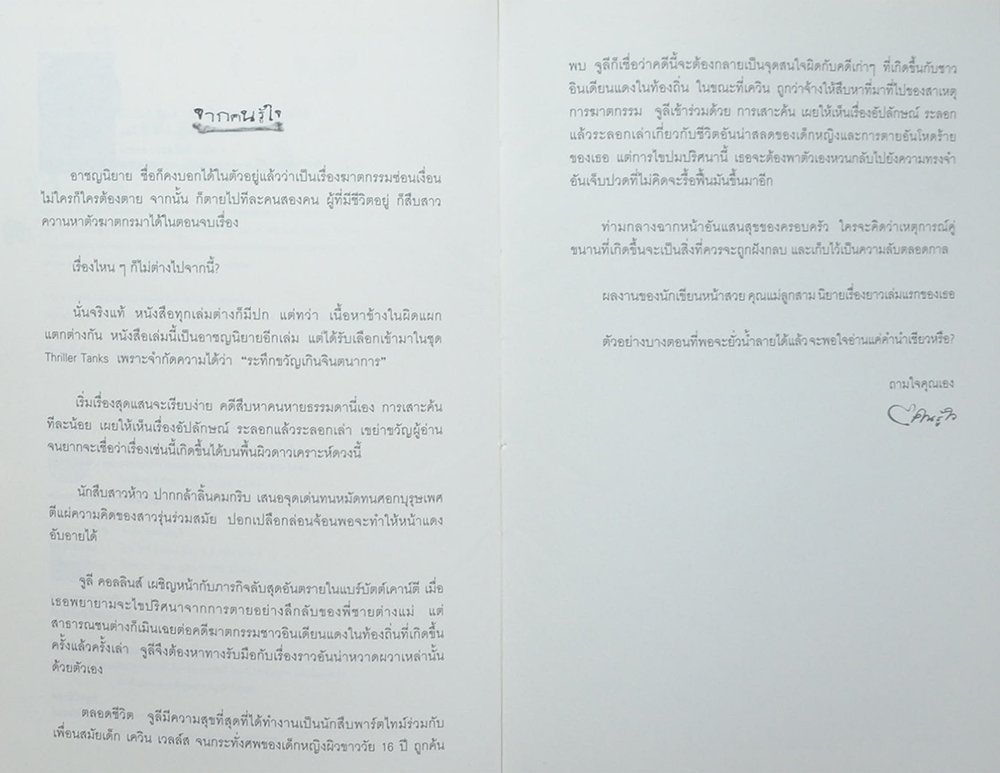 จากคนรู้ใจ
อาชญนิยาย ชื่อก็คงบอกได้ในตัวอยู่แล้วว่าเป็นเรื่องฆาตกรรมซ่อนเงื่อน
ไม่ใครก็ใครต้องตาย จากนั้น ก็ตายไปทีละคนสองคน ผู้ที่มีชีวิตอยู่ ก็สืบสาว
ควานหาตัวฆาตกรมาได้ในตอนจบเรื่อง
เรื่องไหน ๆ ก็ไม่ต่างไปจากนี้?
นั่นจริงแท้ หนังสือทุกเล่มต่างก็มีปก แต่ทว่า เนื้อหาข้างในผิดแผก
แตกต่างกัน หนังสือเล่มนี้เป็นอาชญนิยายอีกเล่ม แต่ได้รับเลือกเข้ามาในชุด
Thriller Tanks เพราะจำกัดความได้ว่า “ระทึกขวัญเกินจินตนาการ”
เริ่มเรื่องสุดแสนจะเรียบง่าย คดีสืบหาคนหายธรรมดานี่เอง การเสาะค้น
ทีละน้อย เผยให้เห็นเรื่องอัปลักษณ์ ระลอกแล้วระลอกเล่า เขย่าขวัญผู้อ่าน
จนยากจะเชื่อว่าเรื่องเช่นนี้เกิดขึ้นได้บนพื้นผิวดาวเคราะห์ดวงนี้
นักสืบสาวห้าว ปากกล้าลิ้นคมกริบ เสนอจุดเด่นทนหมัดทนศอกบุรุษเพศ
ตีแผ่ความคิดของสาวรุ่นร่วมสมัย ปอกเปลือกล่อนจ้อนพอจะทำให้หน้าแดง
อับอายได้
จูลี คอลลินส์ เผชิญหน้ากับภารกิจลับสุดอันตรายในแบร์บัตต์เคาน์ตี เมื่อ
เธอพยายามจะไขปริศนาจากการตายอย่างลึกลับของพี่ชายต่างแม่ แต่
สาธารณชนต่างก็เมินเฉยต่อคดีฆาตกรรมชาวอินเดียนแดงในท้องถิ่นที่เกิดขึ้น
ครั้งแล้วครั้งเล่า จูลีจึงต้องหาทางรับมือกับเรื่องราวอันน่าหวาดผวาเหล่านั้น
ด้วยตัวเอง
ตลอดชีวิต จูลีมีความสุขที่สุดที่ได้ทำงานเป็นนักสืบพาร์ตไทม์ร่วมกับ
เพื่อนสมัยเด็ก เควิน เวลล์ส จนกระทั่งศพของเด็กหญิงผิวขาววัย 16 ปี ถูกค้น
พบ จูลีก็เชื่อว่าคดีนี้จะต้องกลายเป็นจุดสนใจผิดกับคดีเก่าๆ ที่เกิดขึ้นกับชาว
อินเดียนแดงในท้องถิ่น ในขณะที่เควิน ถูกว่าจ้างให้สืบหาที่มาที่ไปของสาเหตุ
การฆาตกรรม จูลีเข้าร่วมด้วย การเสาะค้น เผยให้เห็นเรื่องอัปลักษณ์ ระลอก
แล้วระลอกเล่าเกี่ยวกับชีวิตอันน่าสลดของเด็กหญิงและการตายอันโหดร้าย
ของเธอ แต่การไขปมปริศนานี้ เธอจะต้องพาตัวเองหวนกลับไปยังความทรงจำ
อันเจ็บปวดที่ไม่คิดจะรื้อฟื้นมันขึ้นมาอีก
ท่ามกลางฉากหน้าอันแสนสุขของครอบครัว ใครจะคิดว่าเหตุการณ์คู่
ขนานที่เกิดขึ้นจะเป็นสิ่งที่ควรจะถูกฝังกลบ และเก็บไว้เป็นความลับตลอดกาล
ผลงานของนักเขียนหน้าสวย คุณแม่ลูกสาม นิยายเรื่องยาวเล่มแรกของเธอ
ตัวอย่างบางตอนที่พอจะยั่วน้ำลายได้แล้ว จะพอใจอ่านแค่คำนำเชียวหรือ?
ถามใจคุณเอง
คนรู้ใจ